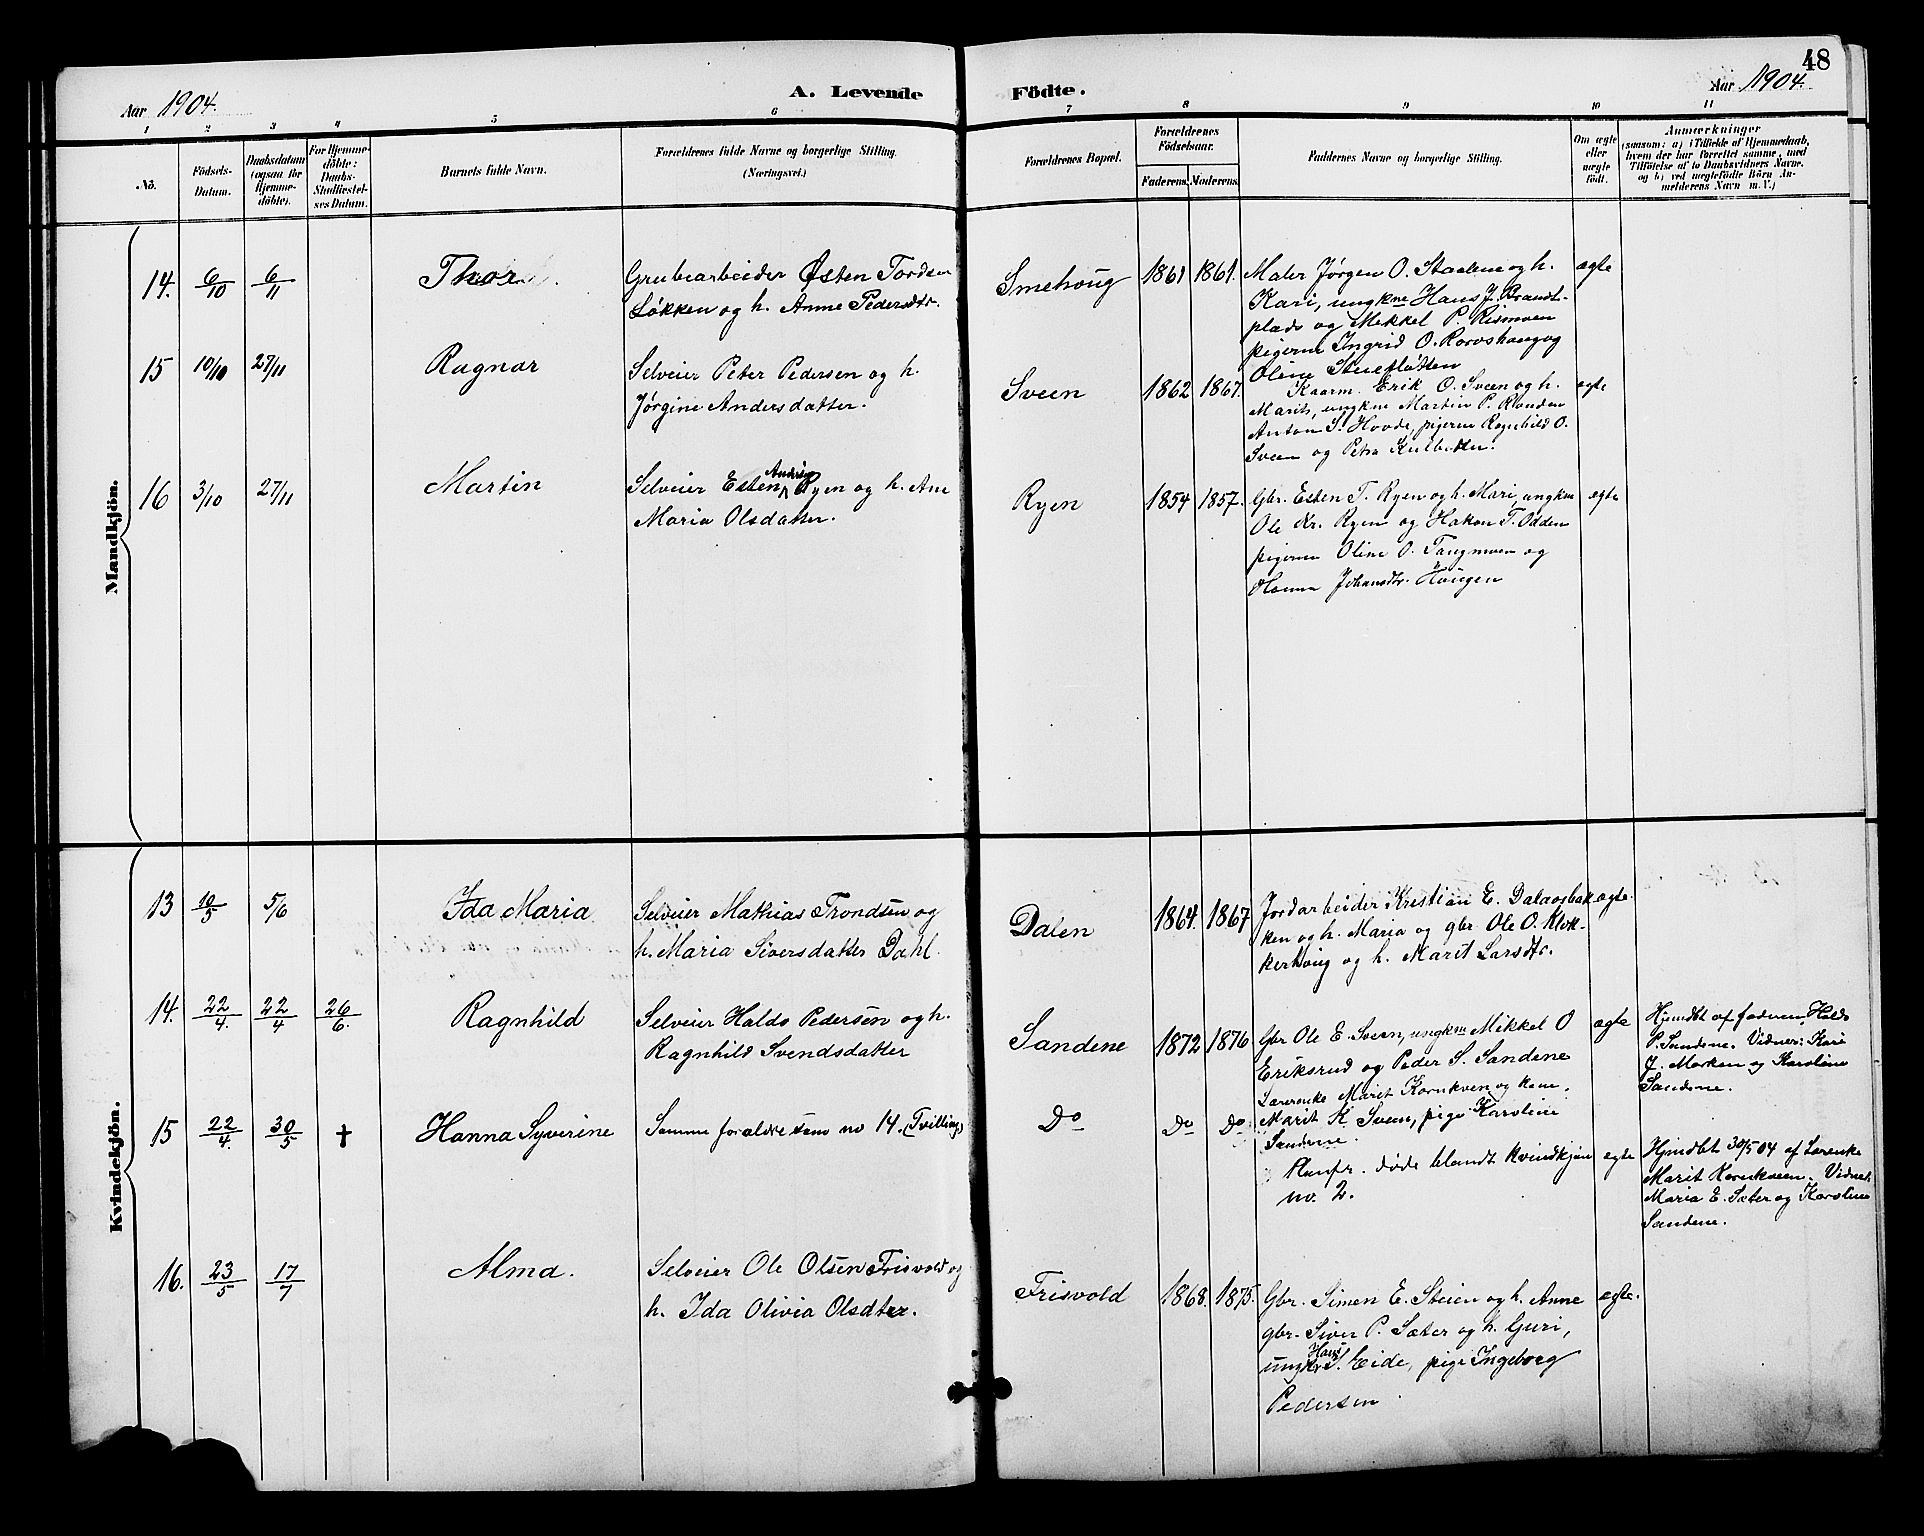 48
Aar 1904.
A. Levende Födte.
Aar 1904.
1 2 3 4 5 6 7 8 9 10 11
No.
Födsels-
Datum.
Daabsdatum
(ogsaa for
Hjemme-
döbte).
For Hjemme-
döbte:
Daabs-
Stadfæstel-
ses Datum.
Barnets fulde Navn.
Forældrenes fulde Navne og borgerlige Stilling.
(Næringsvei.)
Forældrenes Bopæl.
Forældrenes
Födselsaar.
Faderens. Moderens.
Faddernes Navne og borgerlige Stilling.
Om ægte
eller
uægte
födt.
Anmærkninger
(saasom: a) i Tilfælde af Hjemmedaab,
hvem der har forrettet samme, med
Tilföielse af to Daabsvidners Navne.
og b) ved uægtefödte Börn An-
melderens Navn m. V.)
Mandkjön.
14. 6/10 6/11 Thor
Grubearbeider Østen Tordsen
Løkken og h. Anne Pedersdtr.
Smehoug 1861 1861.
Maler Jørgen O. Staalene og h.
Kari, ungkne Hans J. Brandt-
plads og Mikkel P. Rismoen
pigerne Ingrid O. Rorvshaug og
Oline Stueflotten
ægte
15 10/10 27/11 Ragnar
Selveier Peter Pedersen og h.
Jørgine Andersdatter.
Sveen 1862 1867.
Kaarm. Erik O. Sveen og h.
Marit, ungkne Martin P. Randen
Anton S. Hovde, pigerne Ragnhild O.
Sveen og Petra
ægte
16 3/10 27/11 Martin
Selveier Esten Andreas Ryen og h. Ane
Maria Olsdatter.
Ryen 1854 1857.
Gbr. Esten T. Ryen og h. Mari, ungkm
Ole Kr. Ryen og Hakon T. Odden
pigerne Oline O. Tangmoen og
Hanna Johansdtr. Haugen
ægte
Kvindekjön.
13 10/5 5/6 Ida Maria
Selveier Mathias Trondsen og
h. Maria Siversdatter Dahl.
Dalen 1864. 1867
Jordarbeider Kristian E. Dalaasbak-
ken og h. Maria og gbr Ole O. Klok-
kerhaug og h. Marit Larsdtr.
ægte.
14. 22/4. 22/4 26/6. Ragnhild
Selveier Haldo Pedersen og h.
Ragnhild Svendsdatter
Sandene 1872 1876
Gbr Ole E. Sveen, ungkm Mikkel O
Eriksrud og Peder S. Sandene
Lærerenke Marit Kornkven og kone
Marit K. Sveen, pige Karoline
Sandene.
ægte
Hjemdbt af faderen, Haldo
P. Sandene. Vidner: Kari
J. Morken og Karoline
Sandene.
15 22/4. 30/5 † Hanna Syverine
Samme forældre som no 14. (Tvilling)
Do Do Do
Jamfr. døde blandt kvindkjøn
no. 2.
ægte
Hjemdbt 30/5 04 af Lærenke
Marit Kornkveen. Vidner.
Maria E. Sæter og Karoline
Sandene.
16. 23/5 17/7 Alma.
Selveier Ole Olsen Frisvold og
h. Ida Olivia Olsdtr.
Frisvold 1868. 1875.
Gbr. Simen E. Steien og h. Anne
gbr. Siver P. Sæter og h. Guri,
ungkr Hans S. Eide, pige Ingeborg
Pedersen.
ægte.